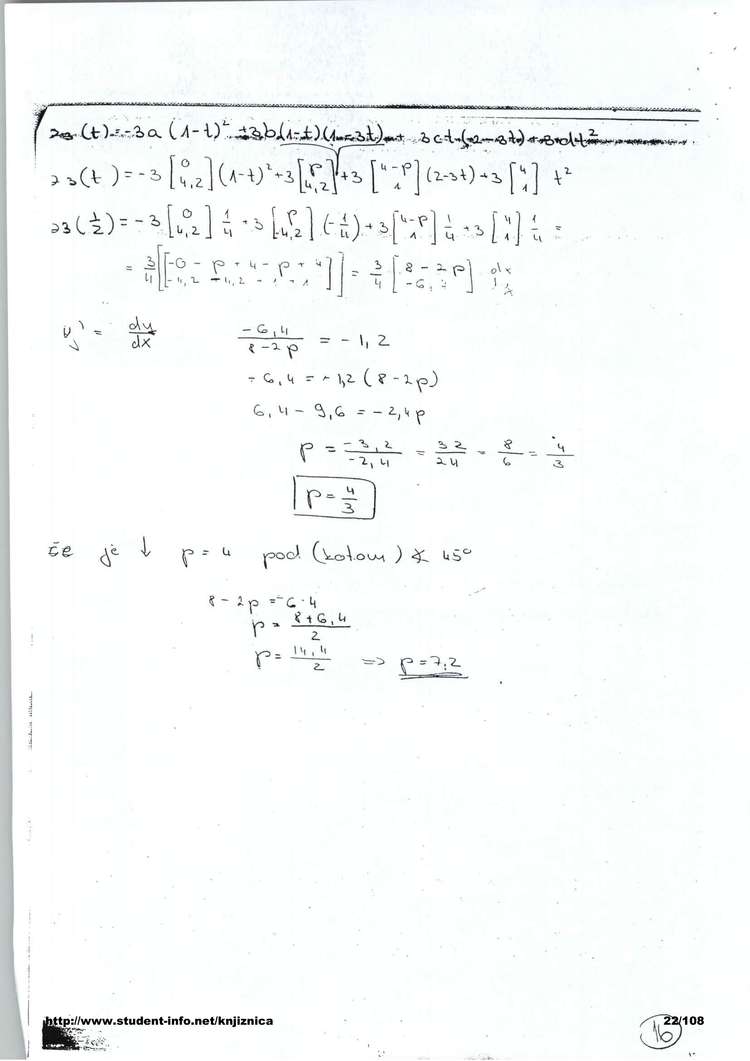 (t) = -3a (1-t)² + 3b(1-t)(1-3t) + 3ct(2-3t) + 3dt²
23(t) = -3 [0 4,2] (1-t)² + 3 [p 4,2] + 3 [4-p 1] (2-3t) + 3 [4 1] t²
23(1/2) = -3 [0 4,2] 1/4 + 3 [p 4,2] (-1/4) + 3 [4-p 1] 1/4 + 3 [4 1] 1/4 =
= 3/4 [[-0 - p + 4 - p + 4 -4,2 -4,2 - 1 + 1]] = 3/4 [8 - 2p -6, ] dx
y' = dy/dx
-6,4 / 8-2p = -1,2
-6,4 = -1,2 (8-2p)
6,4 - 9,6 = -2,4p
p = -3,2/-2,4 = 32/24 = 8/6 = 4/3
p = 4/3
če je ↓ p = 4 pod (kotom) ∡ 45°
8 - 2p = -6.4
p = 8+6,4 / 2
p = 14,4 / 2 => p = 7,2
http://www.student-info.net/knjiznica
22/108
16